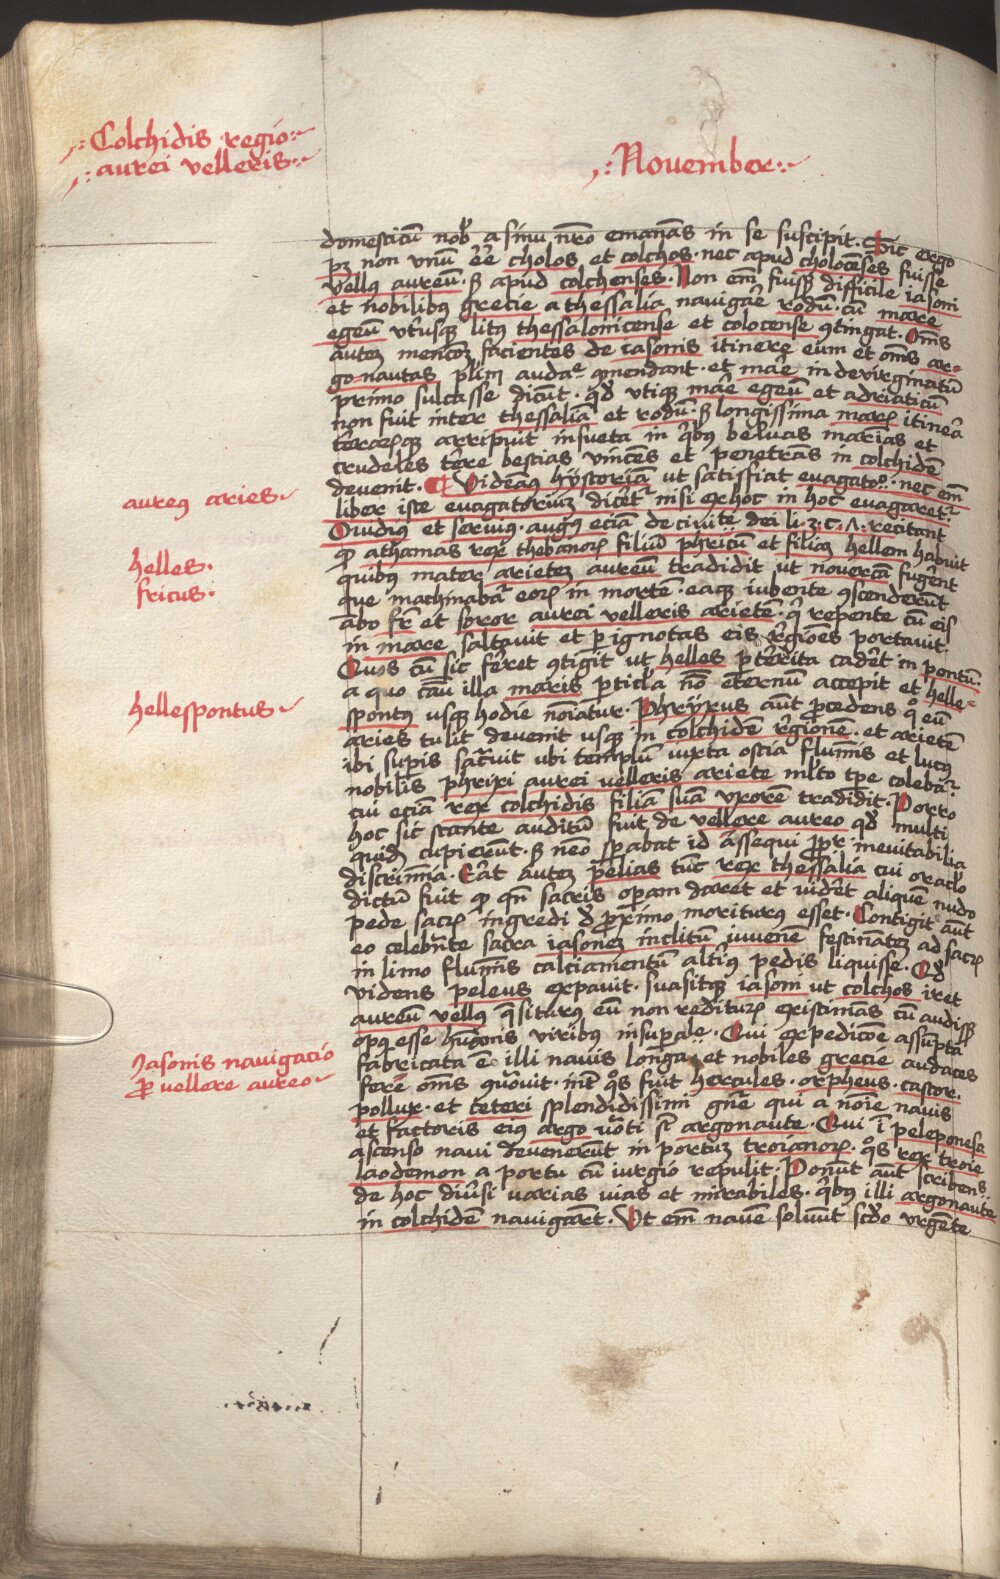 Colchidis regio
aurei velleris
November
domesticū nob̄ a sinu nr̄o emanās in se suscipit. Sic ergo
pꝫ non vnū eē cholos et colchos. nec apud cholocēses fuisse
vellꝰ aureū. sꝫ apud colchenses. Non em̄ fuisꝫ difficile iasoni
et nobilibꝰ grecie a thessalia navigare rodū. cū mare
egeū vtrusqꝫ litꝰ thessalonicense et colocense ꝯtingat. Om̄s
autem mencoꝫ facientes de iasonis itinere eum et om̄s ar-
gonautas plim̄ auda qmendant. et mare in devirginatū
primo sulcasse dicūt. qd̄ vtiqꝫ mare egeū et adriaticū
non fuit inter thessaliā et rodū. sꝫ longissima maris itinera
terrarūqꝫ arripuit insueta in qbꝰ beluas marias et
crudeles terre bestias vincēs et penetrans in colchidē
devenit. Videamꝰ hystoriā ut satisfiat evagatoꝰ. nec em̄
liber iste evagatoriuꝫ dicēt nisi ex hoc in hoc evagaret.
Ovidiꝰ et serviꝰ. augꝰ eciā de civite dei li. 3. c. recitant
ꝙ athamas rex thebanoꝝ filiū phricū et filiaꝫ hellem habuit
quibꝰ mater arieteꝫ aureū tradidit ut novercā fugerēt
que machinabat̄ eoꝝ in mortē. eaqꝫ iubente ꝯscenderūt
ābo fr̄ et soror aurei velleris arietē. q repente cū eis
in mare saltavit et p ignotas eis regiōes portavit.
Quos cū sic ferret ꝯtigit ut helles pterrita cadēt in pontū.
a quo cām illa maris pticla nō eternū accepit et helle-
spontꝰ usqꝫ hodie noīatur. Phryxus aūt pcedens q eū
aries tulit devenit usqꝫ in colchidē regionē. et arietē
ibi supis sacvit ubi templū iuxta ostia flumīs et lucꝰ
nobilis phrixi aurei velleris ariete mlto tpe colebat̄.
cui eciā rex colchidis filiā suā vxorē tradidit. Porro
hoc sic stante auditū fuit de vellere aureo qd̄ multi
quidē cupierūt. sꝫ nemo sperabat id assequi ppt inevitabilia
discrimīa. Erat autem pelias tūc rex thessalia cui oraclo
dictū fuit ꝙ qn sacris opam daret et vidēt aliquē nudo
pede sacꝝ ingredi qd̄ pximo moriturꝰ esset. Contigit aūt
eo celebrāte sacra iasoneꝫ inclitū iuvenē festinātē ad sacꝝ
in limo flumīs calciamentū alteriꝰ pedis liquisse. Qd̄
videns peleus expavit. suasitqꝫ iasoni ut colchos iret
aureū vellꝰ quesiturꝰ eū non redituꝝ existimās cū audisꝫ
opꝰ esse humanis viribꝰ insupale. Qui expedicōe assūpta
fabricata ē illi navis longa et nobiles grecie audaces
fere om̄s quovit. int qos fuit hercules. orpheus. castor.
pollux. et ceteri splendidissimi gn̄e qui a noīe navis
et factoris eiꝰ argo voti sūt argonaute. Qui ī peleponesa
ascenso navi devenerūt in portuꝫ troianoꝝ. qos rex troie
laodemon a portu cū iurgio repulit. Ponūt aūt scribens
de hoc divsi varias vias et mirabiles. qbꝰ illi argonaute
in colchidē navigarēt. Vt em̄ navē solvūt scdo vrgēte
aureꝰ aries
helles.
fricus.
hellespontus
Jasonis navigacio
ꝓ vellere aureo